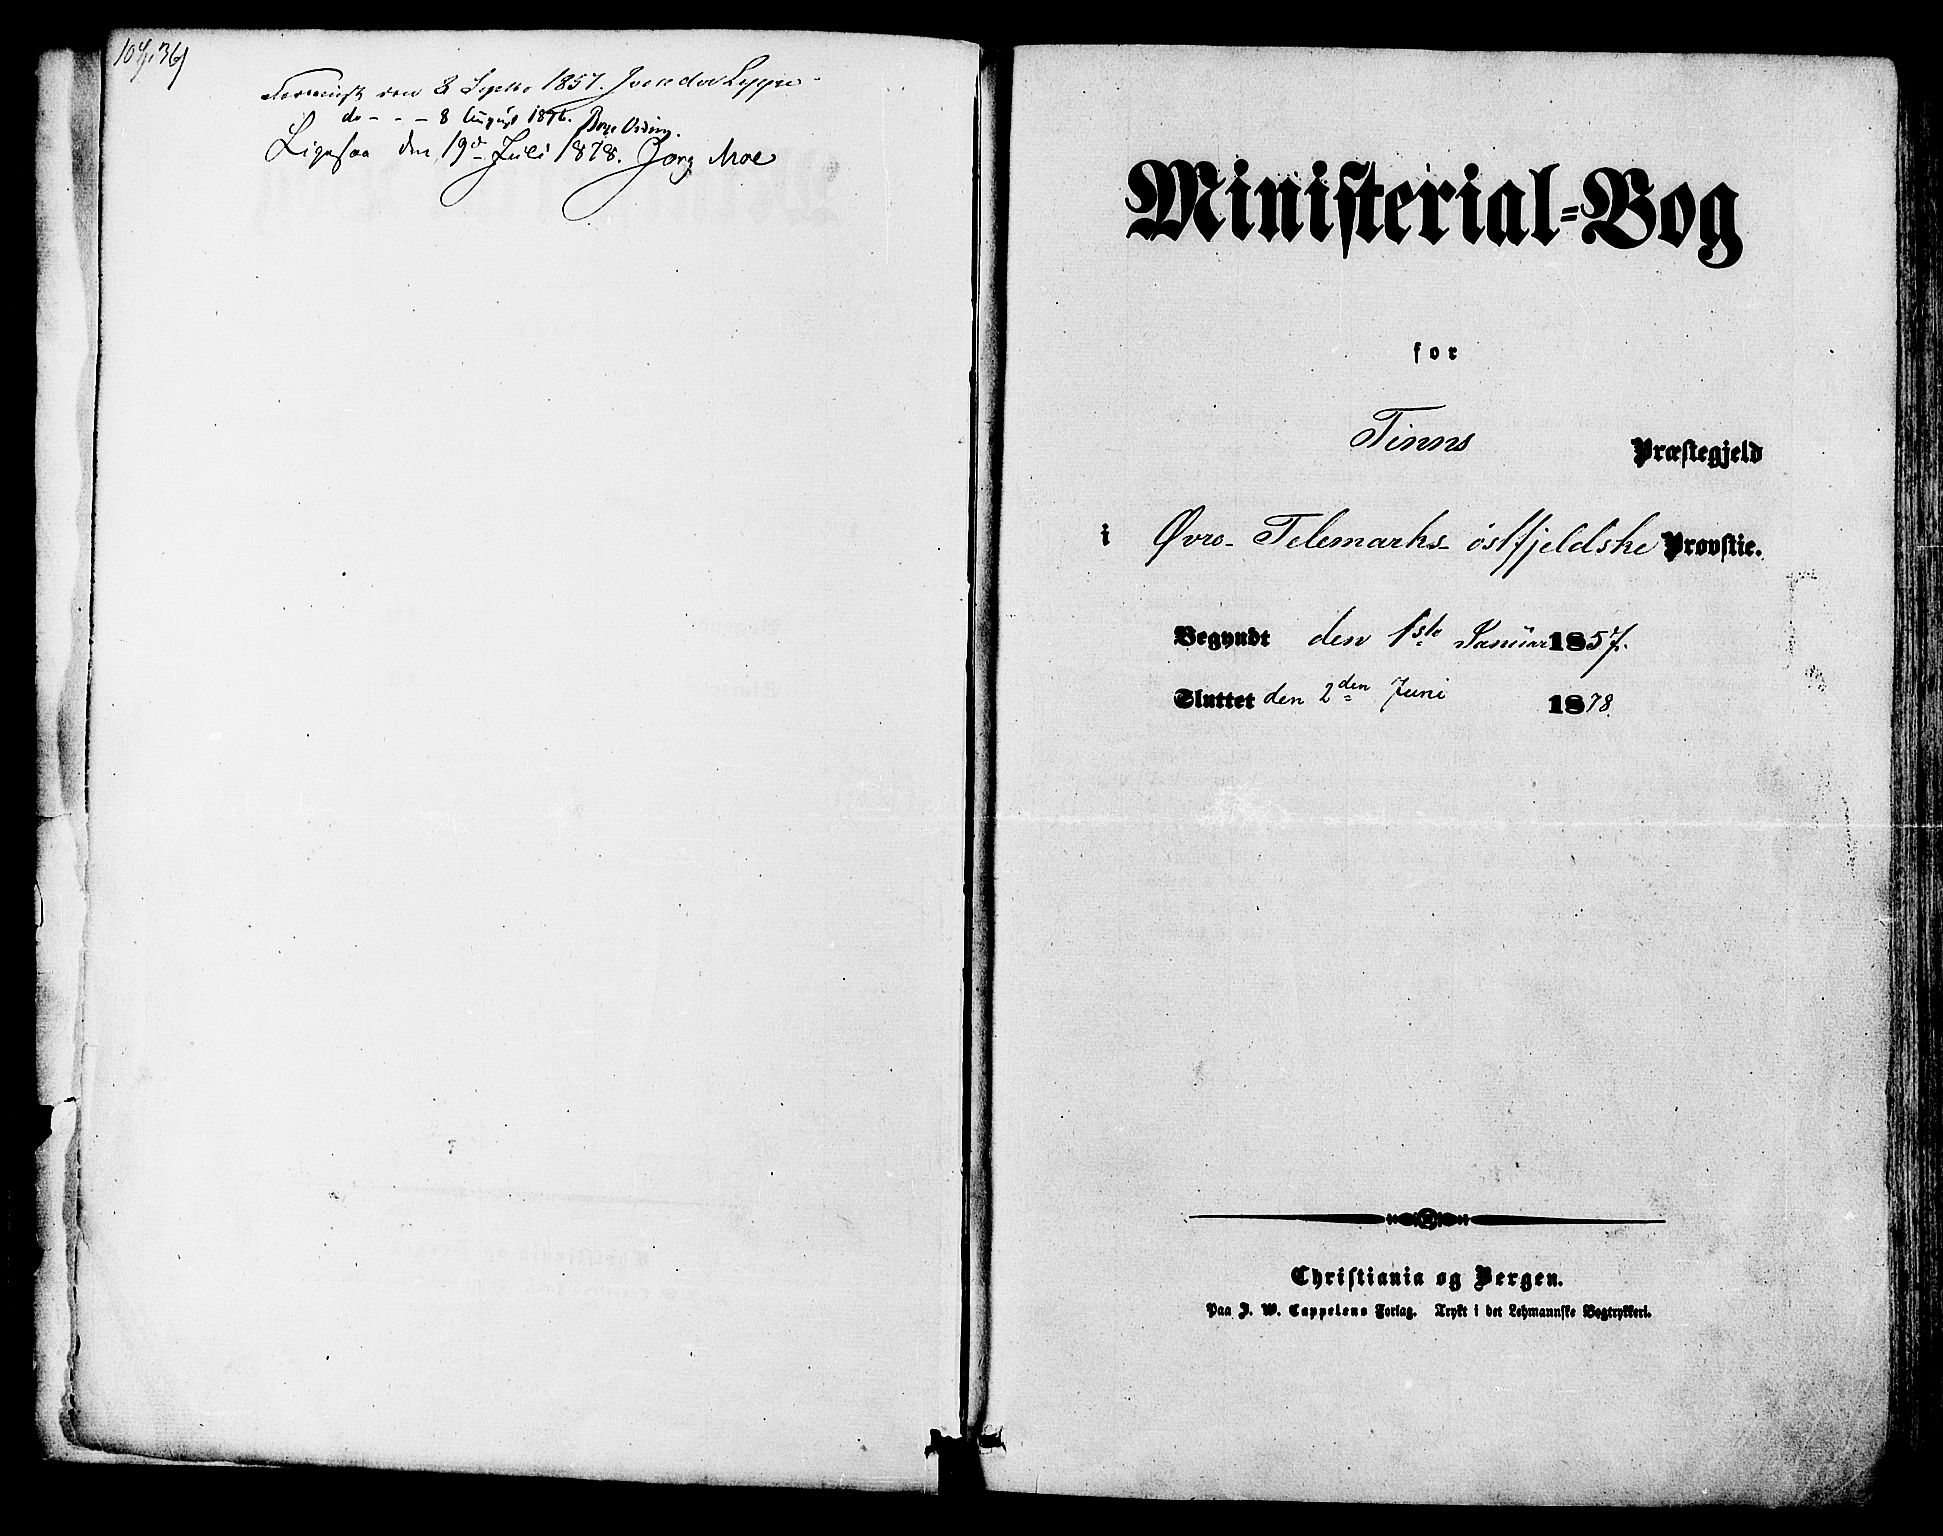 den 8 Septbr 1857.
do - - - 8 August
Ligesaa den 19de Juli 1878. Jørg Moe
Ministerial-Bog
for
Tinns Præstegjeld
i Øvre-Telemarks-östfjeldske Provstie.
Begyndt den 1ste Januar 1857.
Sluttet den 2den Juni 1878.
Christiania og Bergen.
Paa J. W. Cappelens Forlag. Trykt i det Lehmannske Bogtrykkeri.